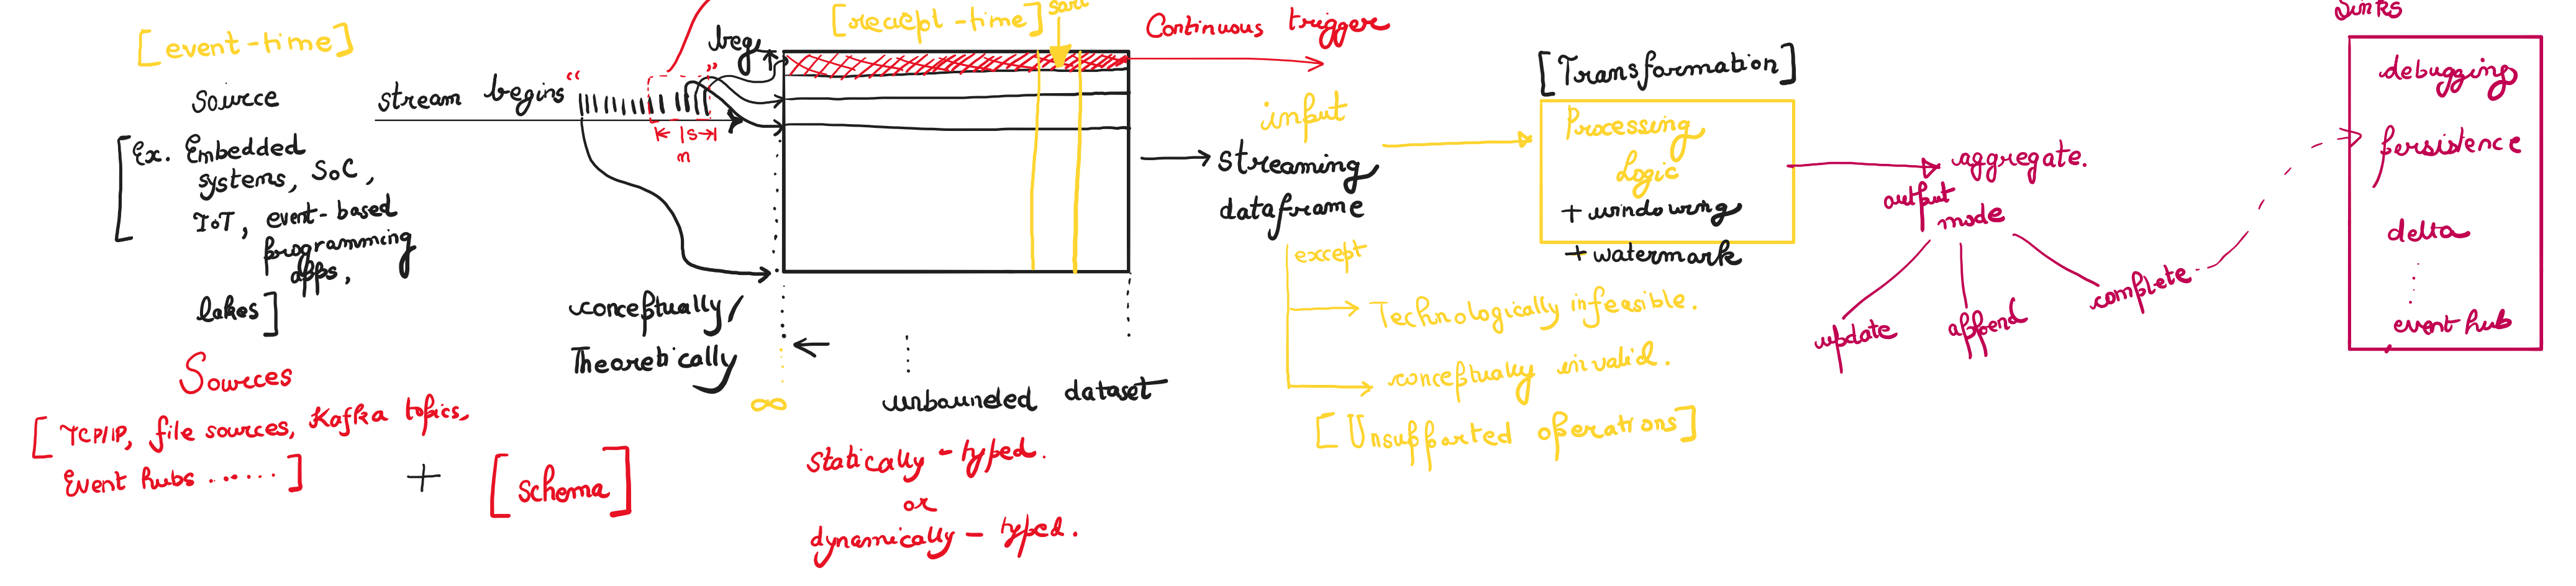 [event-time]
Source
[Ex. Embedded
systems, SoC,
IoT, event-based
programming
apps,
lakes]
Sources
[TCP/IP, file sources, Kafka topics,
Event hubs ......]
+ [schema]
stream begins "
"
← 1s →
m
beg
[reciept-time]
Continuous trigger
conceptually/
Theoretically
∞
unbounded dataset
statically-typed.
or
dynamically-typed.
input
streaming
dataframe
except
Technologically infeasible.
conceptually invalid.
[Unsupported operations]
[Transformation]
Processing
Logic
+ windowing
+ watermark
aggregate.
output
mode
update
append
complete
Sinks
debugging
persistence
delta
event hub